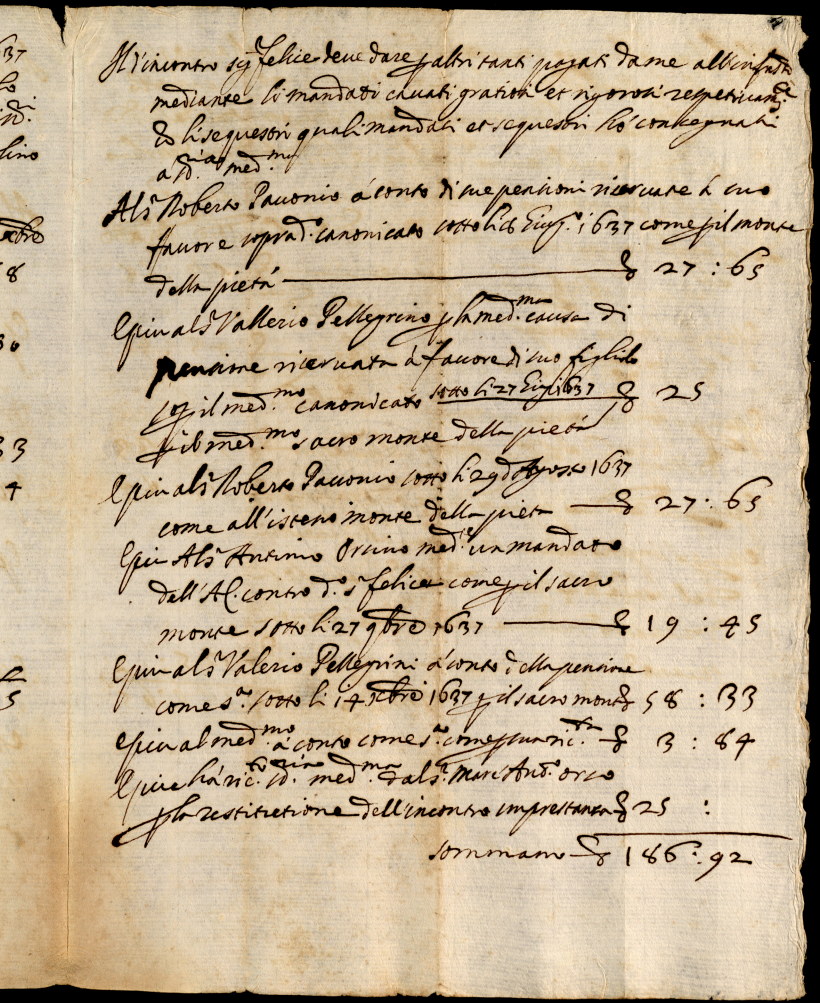 All'incontro sig.r felice deve dare p altri tanti pagati da me all'infradi
mediante li mandati cavati gratiosi et rigorosi respetivam.te
& li sequestri quali mandati et sequestri hó consegnati
a med.mo
Al s.r Roberto Pavonio á conto di sue pensioni riservate à suo
favore soprad.o canonicato sotto li 8 Giug.o 1637 come p il monte
della pietá 27 : 65
E piu al s.r Vallerio Pellegrino p la med.ma causa di
pensione riservata à favore di suo figliolo
il med.mo canonicato sotto li 27 Giug. 1637 25
p il med.mo sacro monte della pietá
E piu al s.r Roberto Pavonio sotto li 29 d'Agosto 1637
come all'istesso monte della pieta 27 : 65
E piu Al s.r Antimo Orsino med.te un mandato
dell'A.C. contro d.o s.r felice come p il sacro
monte sotto li 27 9bre 1637 19 : 45
E piu al s.r Valerio Pellegrini á conto della pensione
come s.a sotto li 14 Xbre 1637 p il sacro monte 58 : 33
E piu al med.mo á conto come s.a come p sua ric.ta 3 : 84
E piu ha ric.to med.ma dal s.r Marc'Ant.o orso
p la restitutione dell'incontro imprestanza 25 :
sommano 186 : 92
37
lino
Xbre
8
30
33
4
5